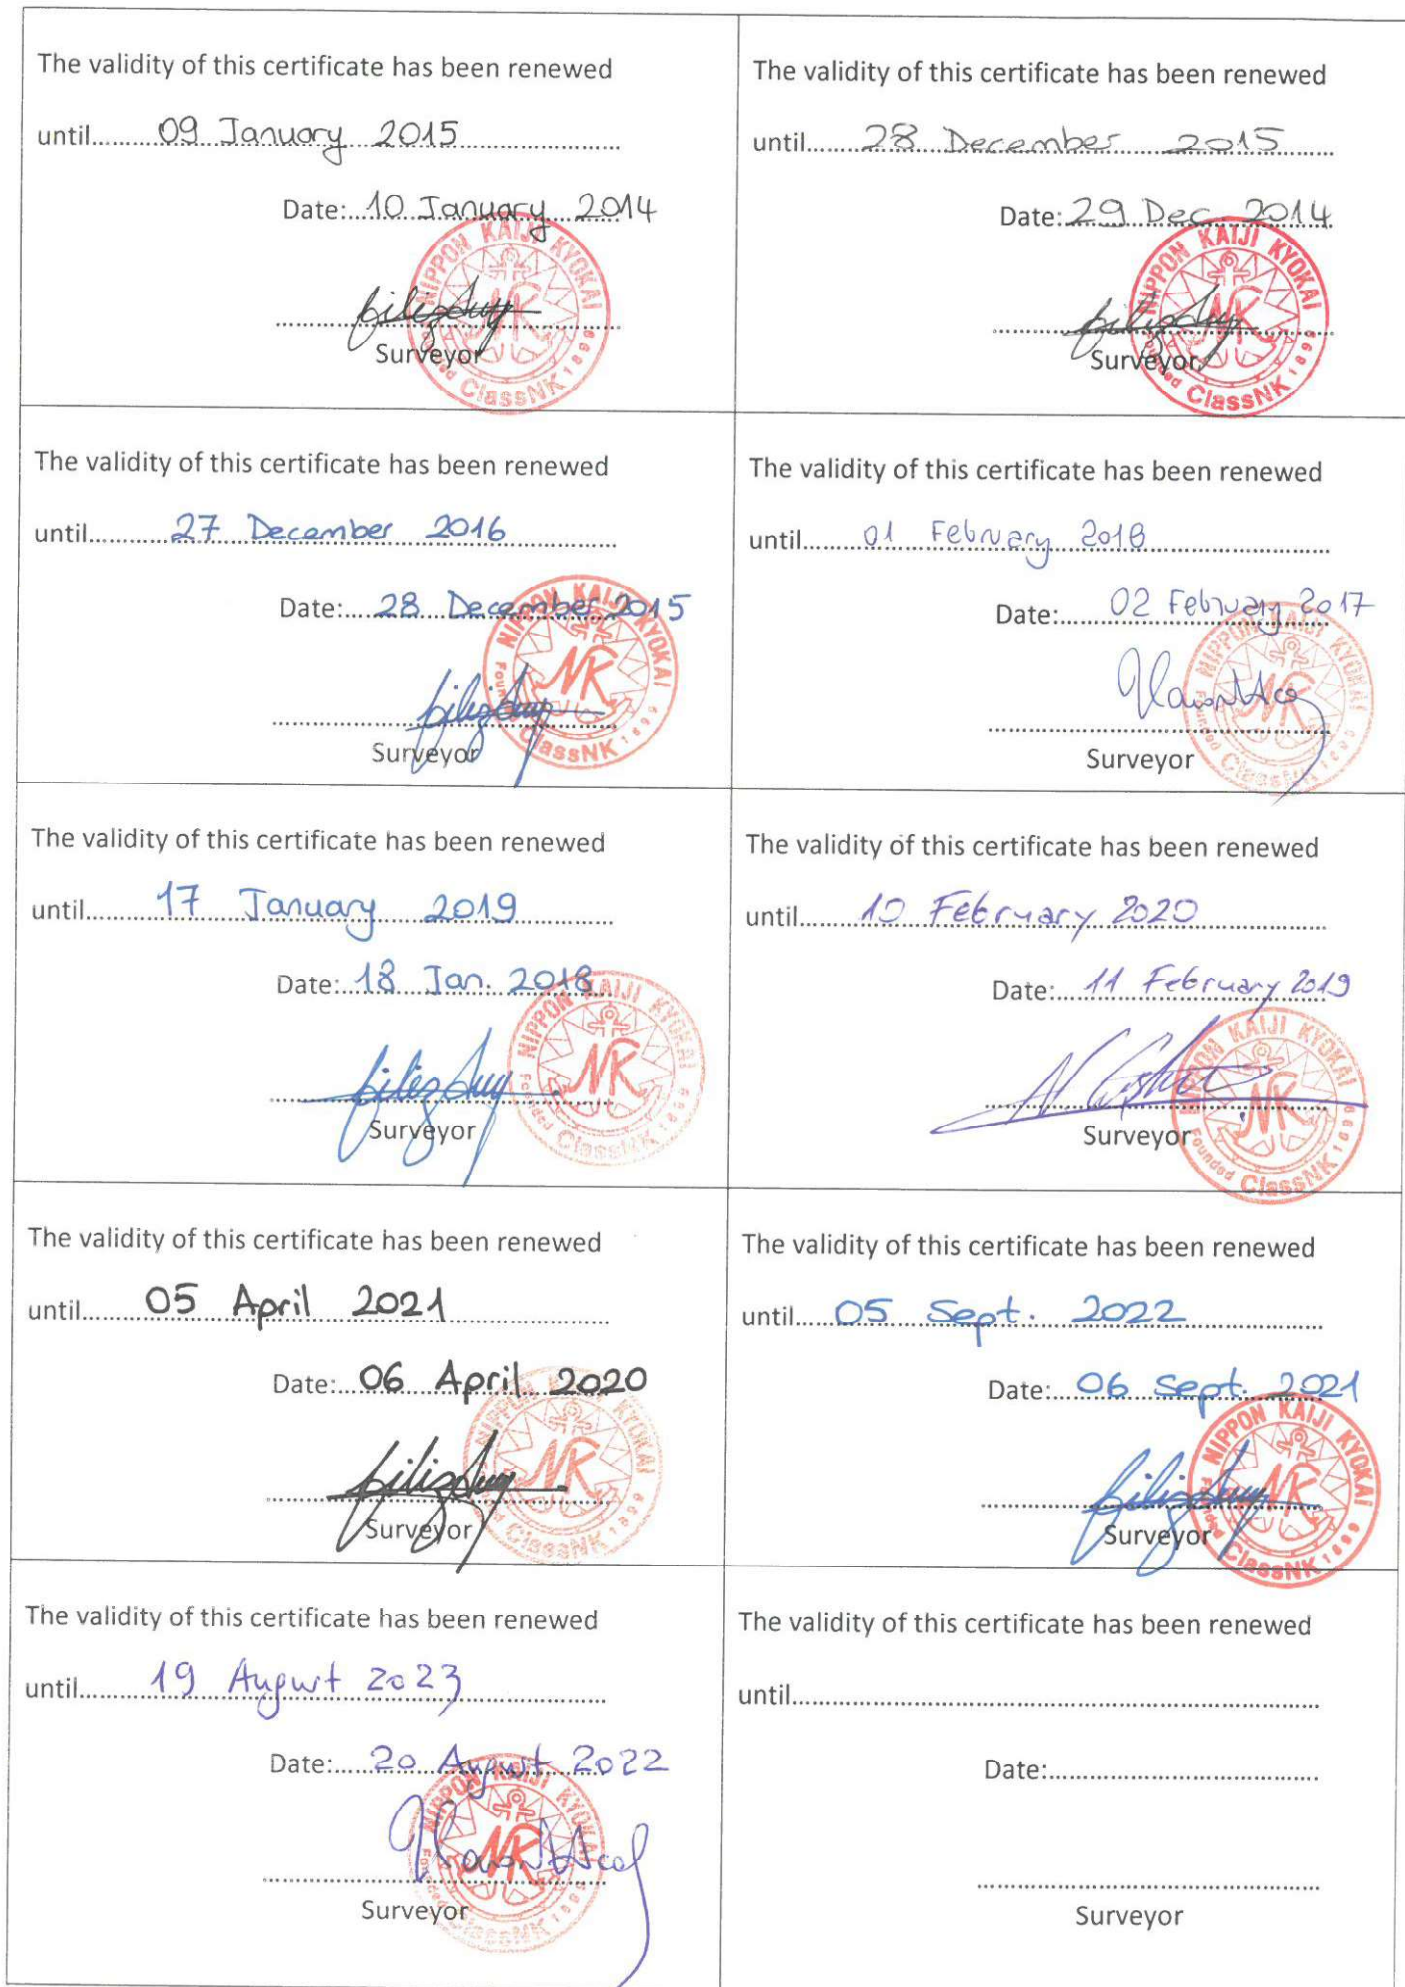 The validity of this certificate has been renewed
until........09 January 2015
Date:..10 January 2014
NIPPON KAIJI KYOKAI
Founded 1899
ClassNK
NK
Surveyor
The validity of this certificate has been renewed
until........28 December 2015
Date:29 Dec. 2014
NIPPON KAIJI KYOKAI
Founded 1899
ClassNK
NK
Surveyor
The validity of this certificate has been renewed
until........27 December 2016
Date:....28 December 2015
NIPPON KAIJI KYOKAI
Founded 1899
ClassNK
NK
Surveyor
The validity of this certificate has been renewed
until........01 February 2018
Date:........02 February 2017
NIPPON KAIJI KYOKAI
Founded 1899
ClassNK
NK
Surveyor
The validity of this certificate has been renewed
until........17 January 2019
Date:..18 Jan. 2018
NIPPON KAIJI KYOKAI
Founded 1899
ClassNK
NK
Surveyor
The validity of this certificate has been renewed
until........10 February 2020
Date:...11 February 2019
NIPPON KAIJI KYOKAI
Founded 1899
ClassNK
NK
Surveyor
The validity of this certificate has been renewed
until........05 April 2021
Date:...06 April 2020
NIPPON KAIJI KYOKAI
Founded 1899
ClassNK
NK
Surveyor
The validity of this certificate has been renewed
until.....05 Sept. 2022
Date:...06 Sept. 2021
NIPPON KAIJI KYOKAI
Founded 1899
ClassNK
NK
Surveyor
The validity of this certificate has been renewed
until........19 August 2023
Date:.....20 August 2022
NIPPON KAIJI KYOKAI
Founded 1899
ClassNK
NK
Surveyor
The validity of this certificate has been renewed
until........
Date:........
Surveyor